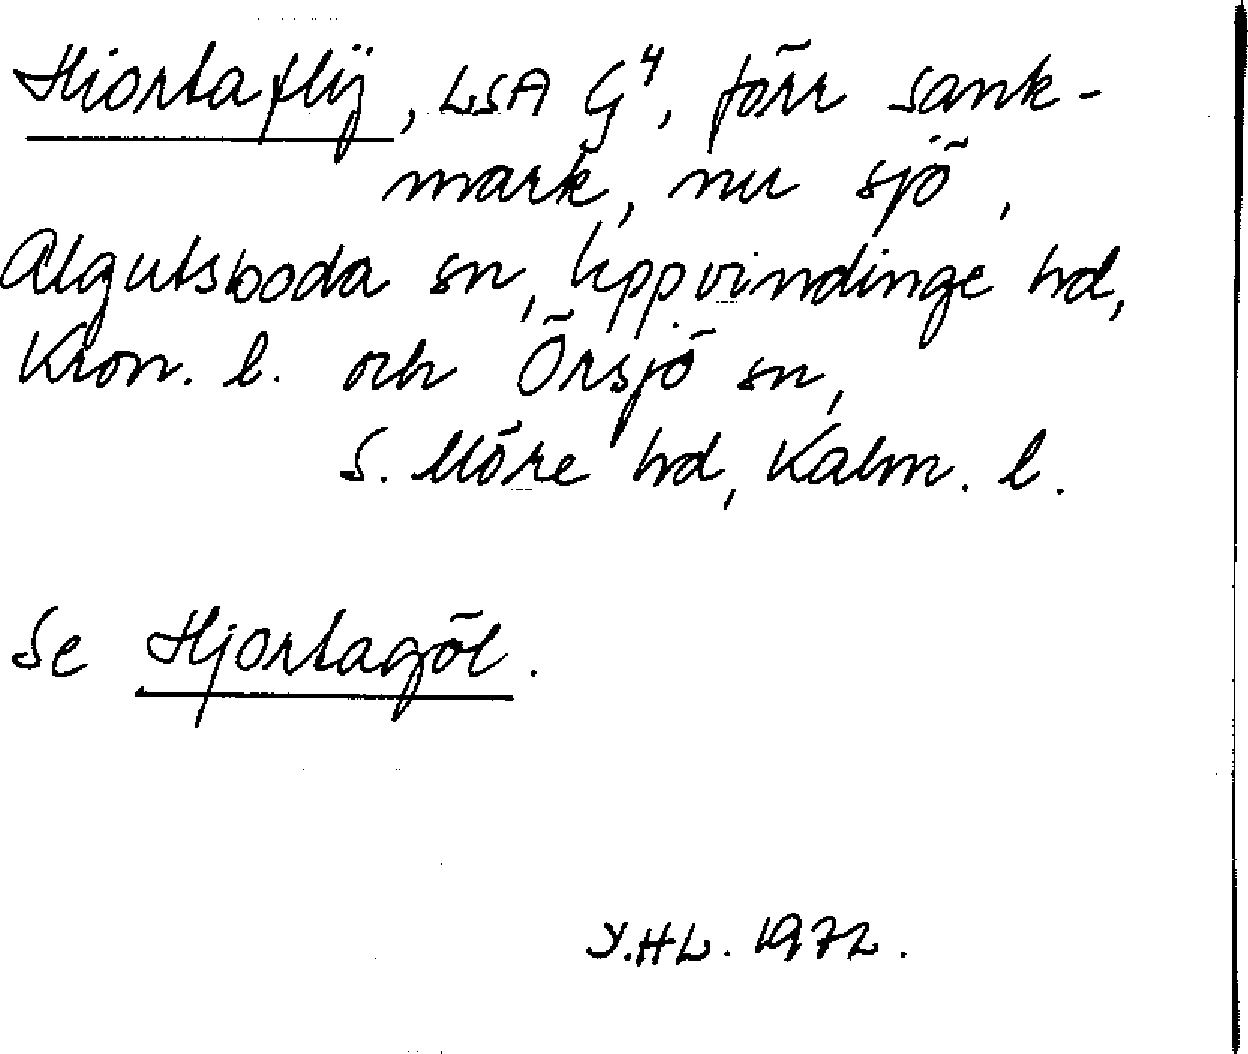 Hiortaflÿ, LSA G⁴, förr sank-
mark, nu sjö,
Algutsboda sn, Uppvindinge hd,
Kron. l. och Örsjö sn,
S. Möre hd, Kalm. l.
Se Hjortagöl.
Y.HL. 1972.